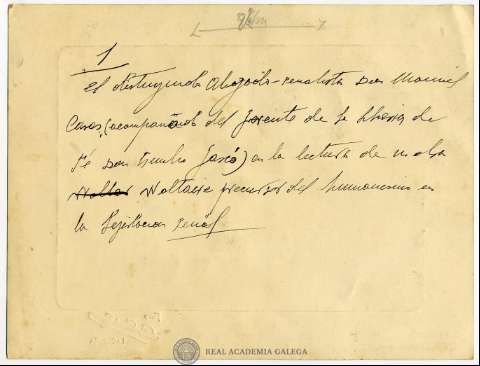 1
El distinguido Abogado-penalista Don Manuel
Casas, (acompañado del Gerente de la librería de
Fé Don Emilio ) en la lectura de su obra
Woltaire precursor del humanismo en
la legislación penal.
REAL ACADEMIA GALEGA